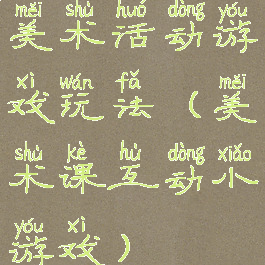 měi shù huó dòng yóu
美术活动游
xì wán fǎ měi
戏玩法(美
shù kè hù dòng xiǎo
术课互动小
yóu xì
游戏)